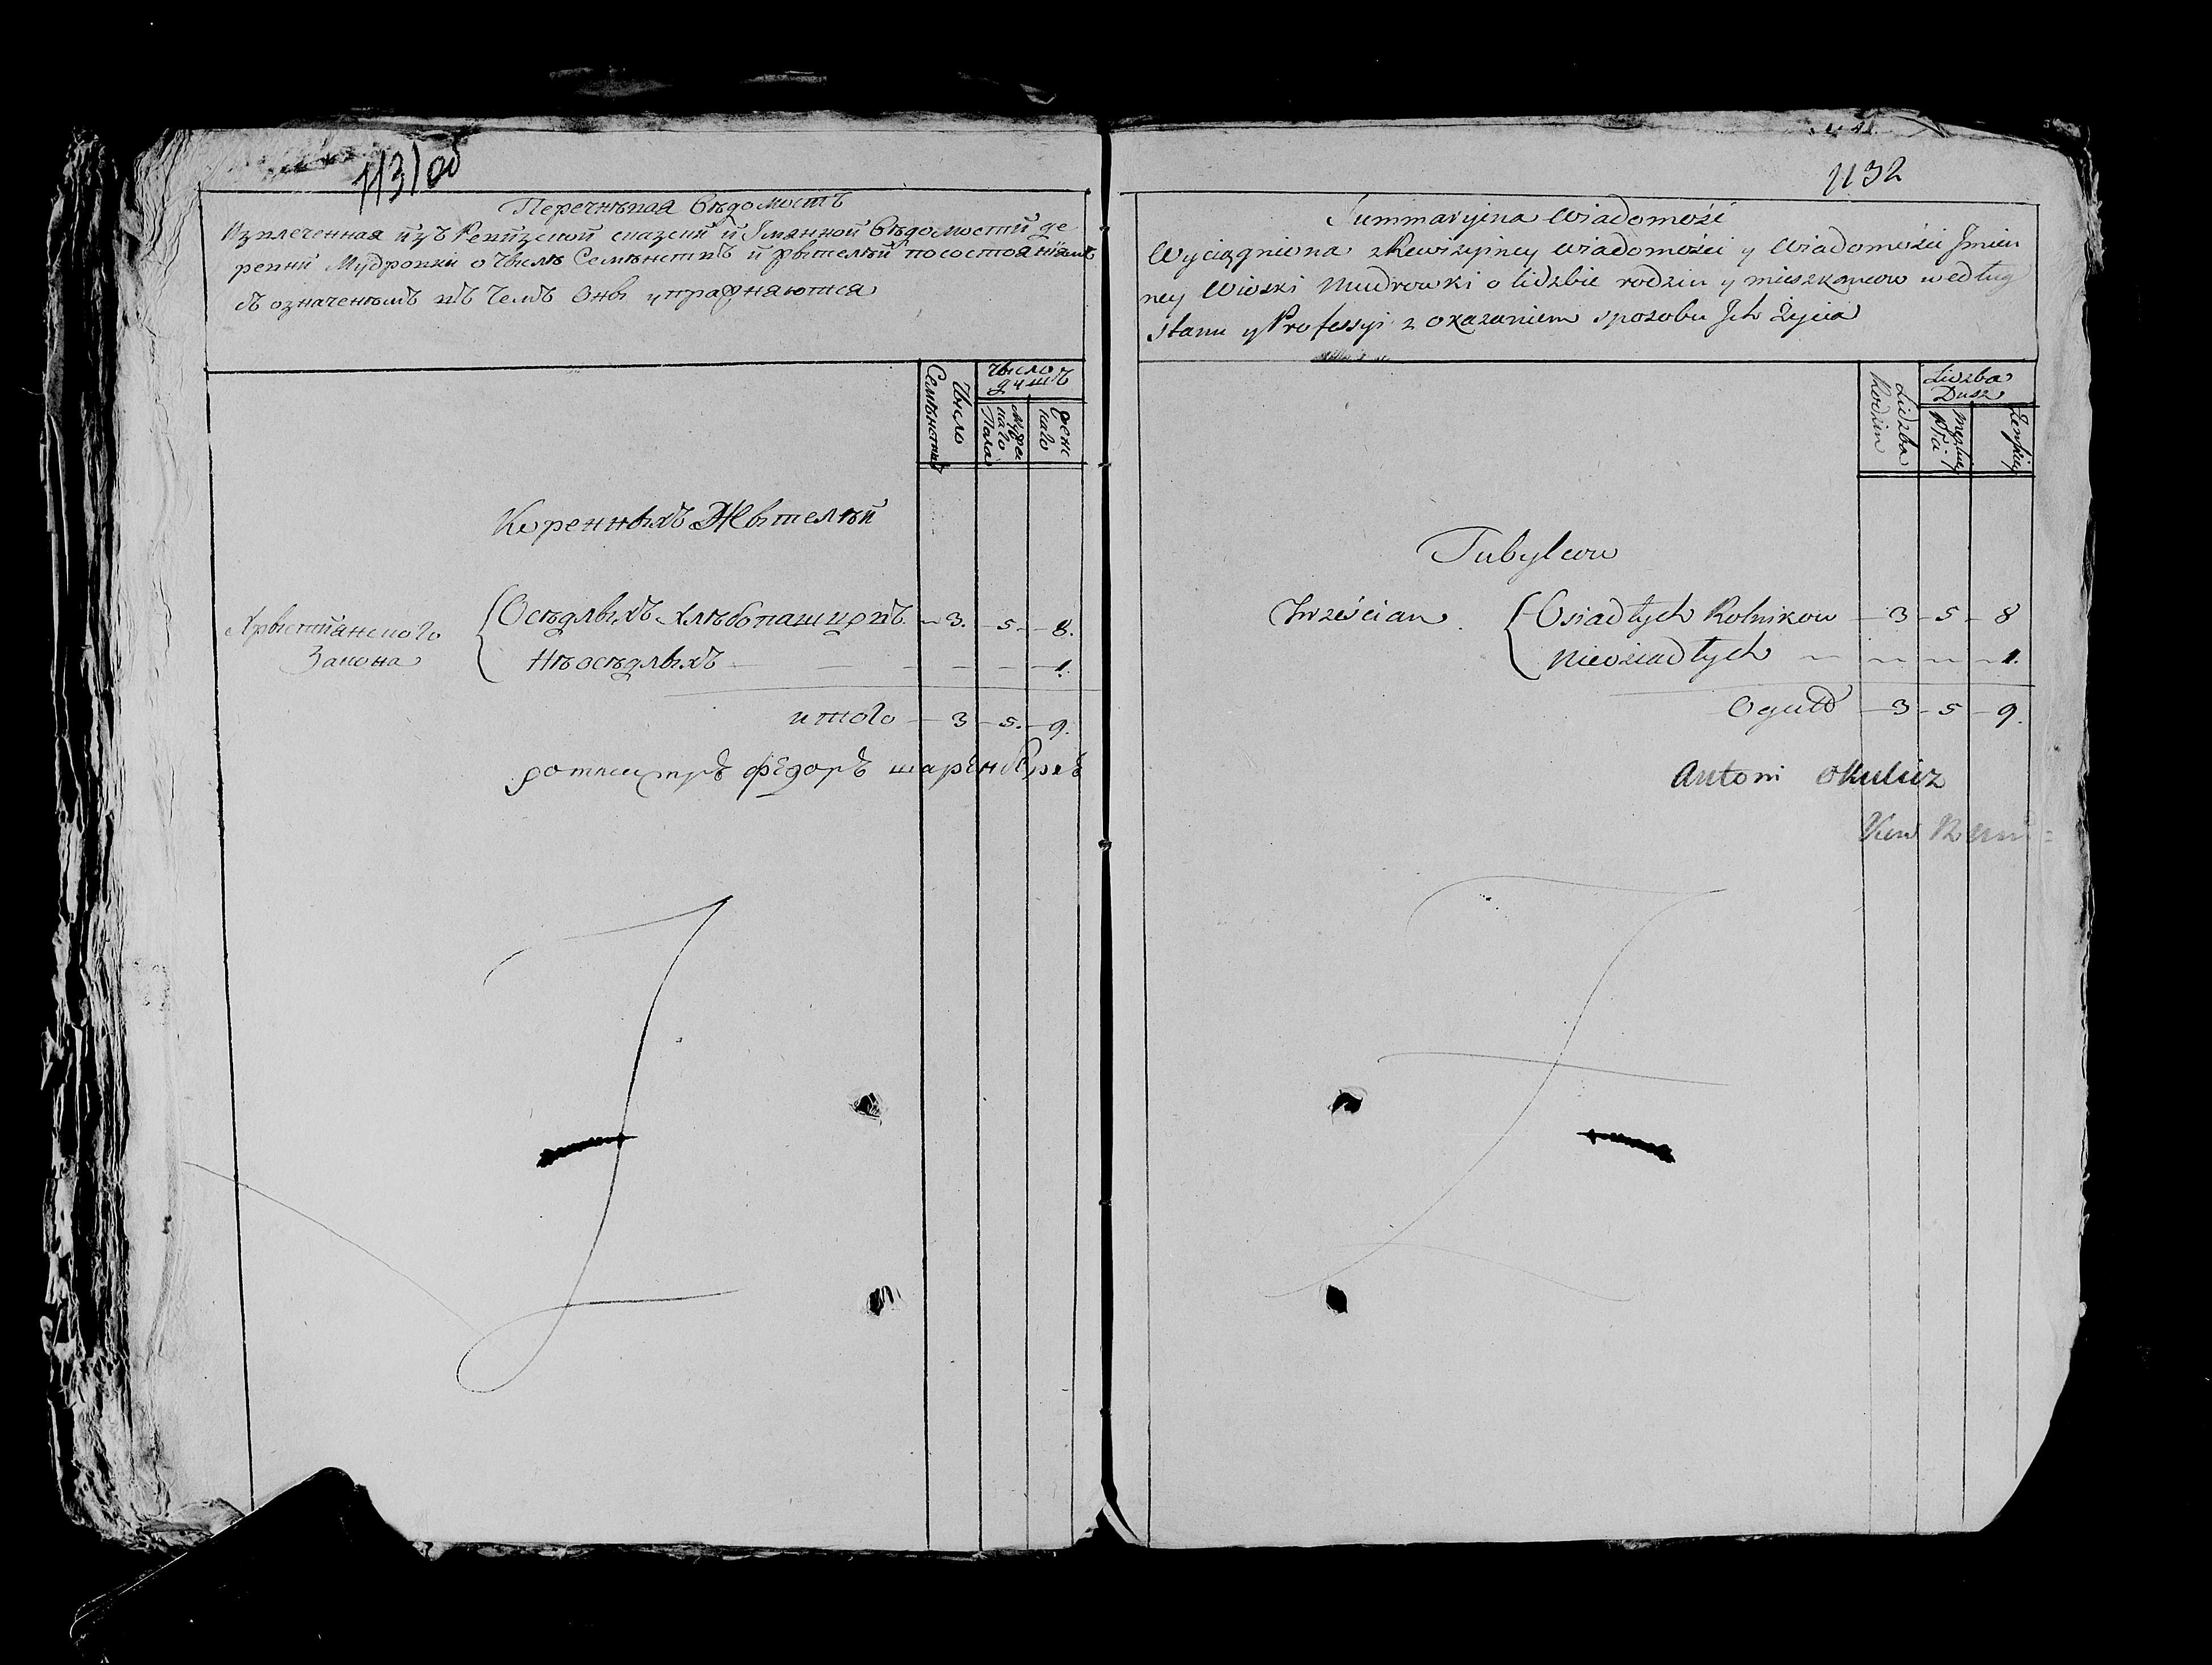 1131 об
Перечневая Вѣдомость
Извлеченная изъ Ревизской сказки и Имянной Вѣдомости де
ревни Мудровки о Числѣ Семѣнствъ и жытелѣй по состоянїямъ
съ означенѣмъ въ Чемъ Оны упражняются
Число Семѣнствъ
Число душъ
Мужескаго Пола
Женскаго
Коренныхъ Жытелѣй
Хрыстіянского Закона
Осѣдлыхъ Хлѣбопашцовъ 3. 5. 8.
Нѣосѣдлыхъ — — — 1.
итого 3 5. 9.
ротмистръ Фѣдоръ
1132
Summaryina Wiadomość
Wyciągniona z Rewizyiney Wiadomości y Wiadomości Jmien
ney Wioski Mudrowki o liczbie rodzin y mieszkancow według
stanu y Professyi z okazaniem sposobu Jch Życia
Liczba Rodzin
Liczba Dusz
Męzkiey Płci
Żenskiey
Tubylcow
Chrześcian
Osiadłych Rolnikow 3 5 8
Nieosiadłych — — — 1.
Oguł 3 5 9.
Antoni Okulicz